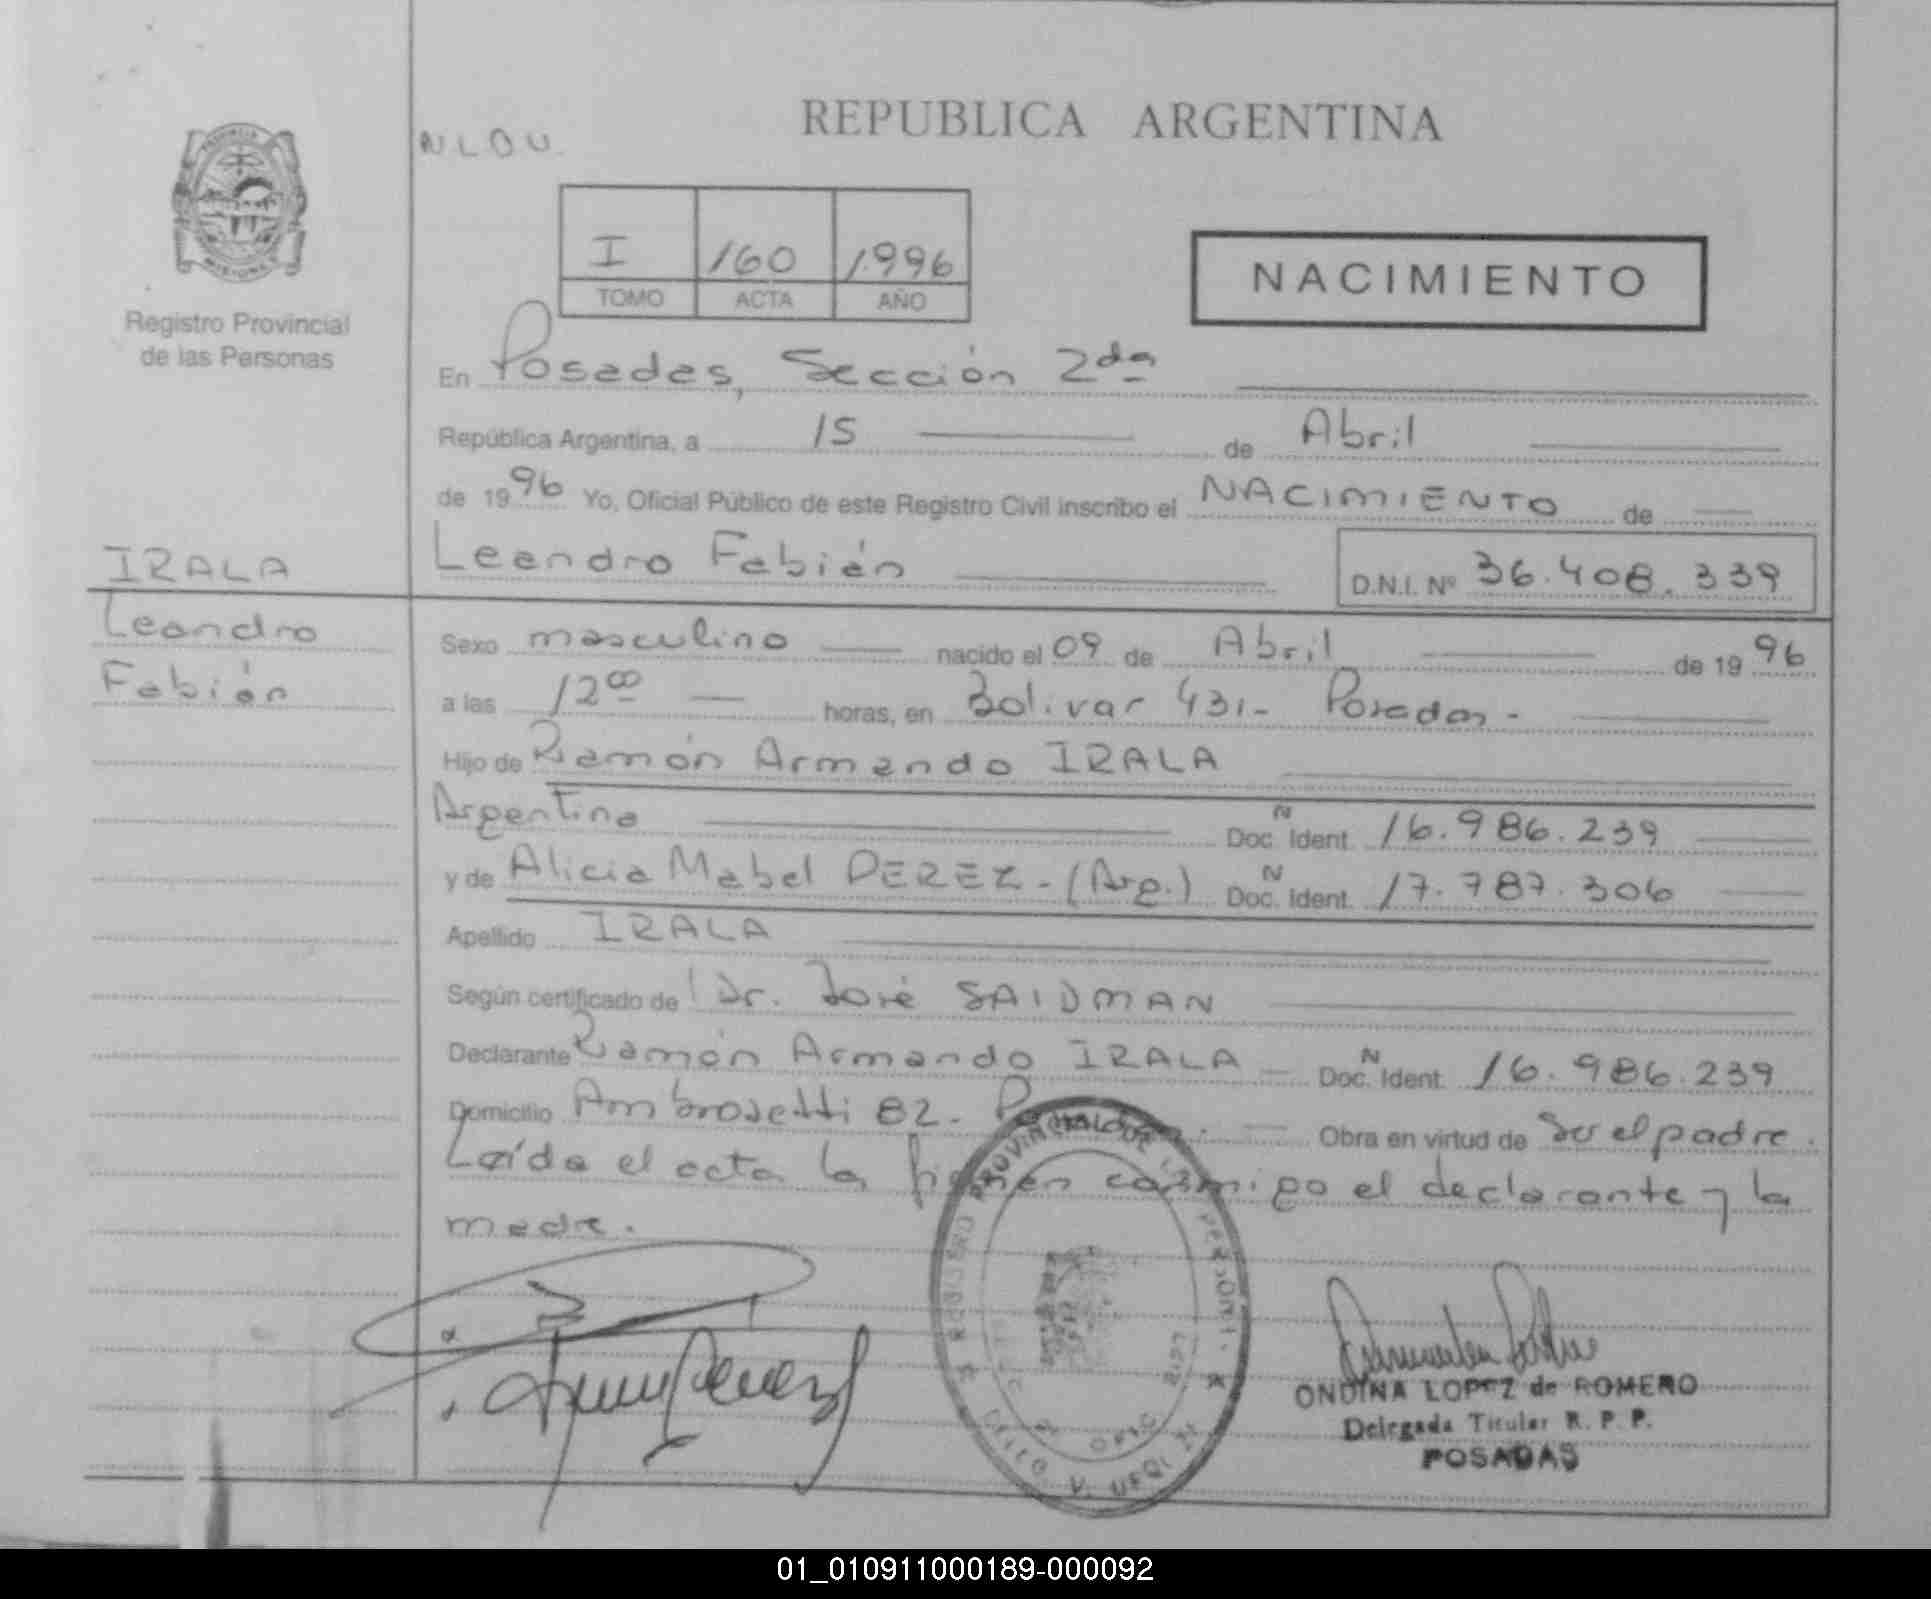 REPUBLICA ARGENTINA
PROVINCIA
MISIONES
Registro Provincial
de las Personas
I 160 1996
TOMO ACTA AÑO
NACIMIENTO
En Posadas, Sección 2da
República Argentina, a 15 de Abril
de 1996 Yo, Oficial Público de este Registro Civil inscribo el NACIMIENTO de
IRALA
Leandro Fabián D.N.I. Nº 36.408.339
Leandro
Fabián
Sexo masculino nacido el 09 de Abril de 1996
a las 12 00 horas, en Bolivar 431- Posadas-
Hijo de Ramón Armando IRALA
Argentino Doc. Ident. N 16.986.239
y de Alicia Mabel PEREZ - (Arg.) Doc. Ident. N 17.787.306
Apellido IRALA
Según certificado de Dr. José SAIDMAN
Declarante Ramón Armando IRALA Doc. Ident. N 16.986.239
Domicilio Ambrosetti 82- Obra en virtud de Ser el padre.
Leída el acta la firman conmigo el declarante y la
madre.
ONDINA LOPEZ de ROMERO
Delegada Titular R. P. P.
POSADAS
01_010911000189-000092